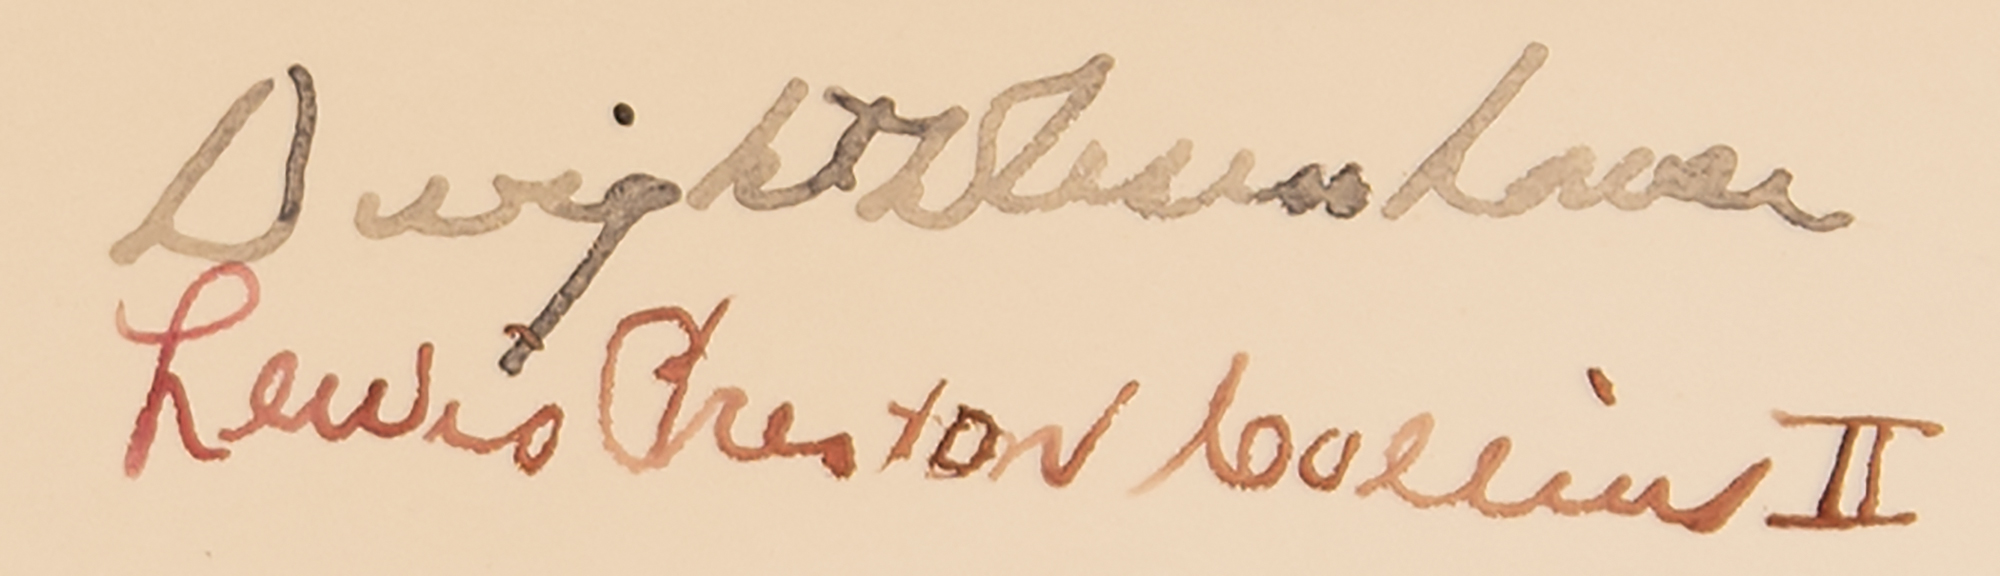 Dwight D Eisenhower
Lewis Preston Collins II